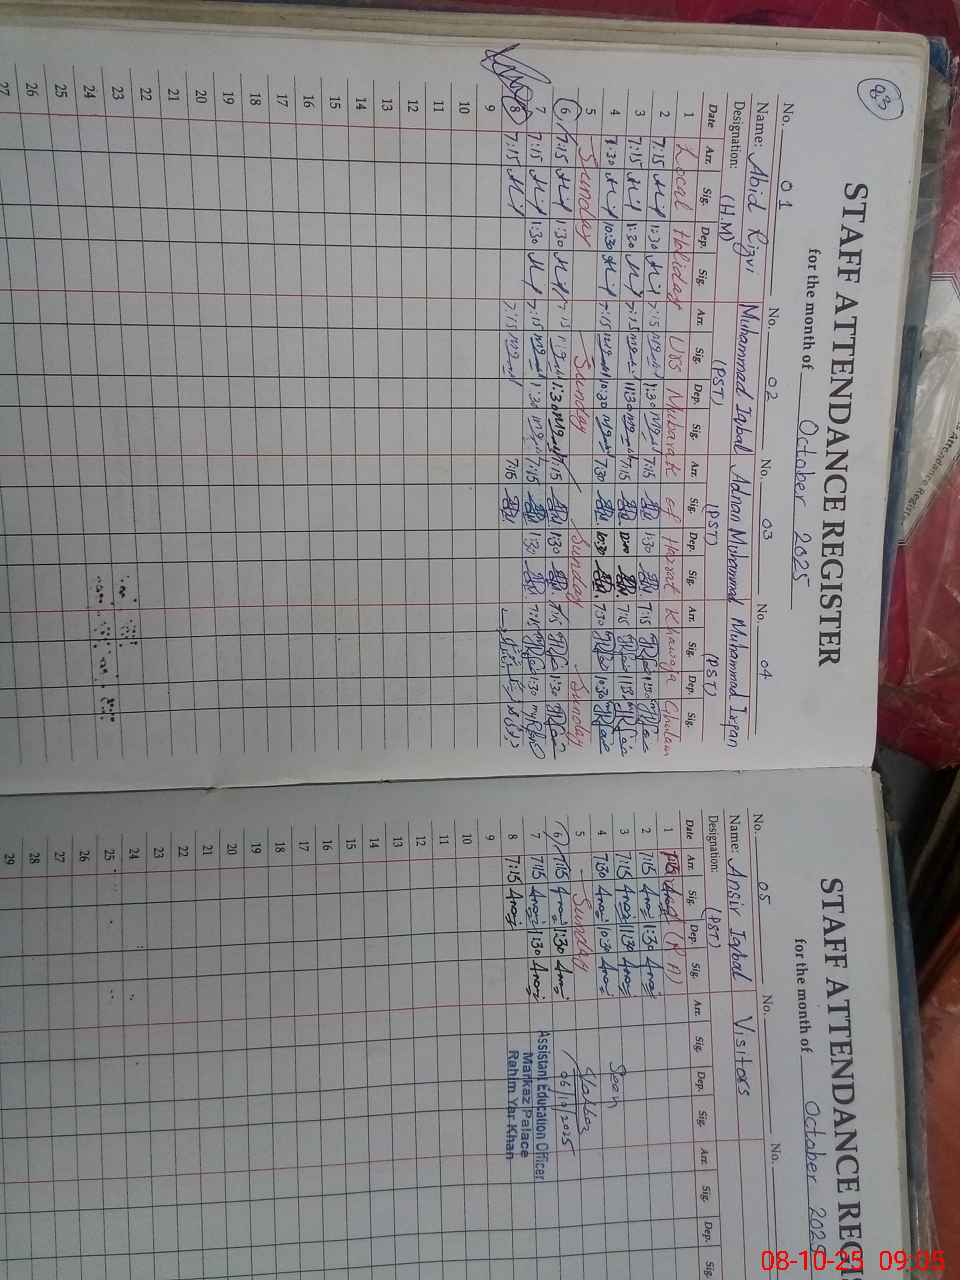 83
STAFF ATTENDANCE REGISTER
for the month of October 2025
No. 01 No. 02 No. 03 No. 04
Name: Abid Rizvi Muhammad Iqbal Adnan Muhammad Muhammad Irfan
Designation: (H.M) (PST) (PST) (PST)
Date Arr. Sig. Dep. Sig. Arr. Sig. Dep. Sig. Arr. Sig. Dep. Sig. Arr. Sig. Dep. Sig.
1 Local Holiday Urs Mubarak of Hazrat Khawaja Ghulam
2 7:15 1:30 7:15 1:30 7:15 1:30 7:15 1:30
3 7:15 11:30 7:15 11:30 7:15 7:15 11:30
4 7:30 10:30 7:15 10:30 7:30 10:30 7:30 10:30
5 Sunday Sunday Sunday Sunday
6 7:15 1:30 7:15 1:30 7:15 1:30 7:15 1:30
7 7:15 1:30 7:15 1:30 7:15 1:30 7:15 1:30
8 7:15 7:15 7:15
9
10
11
12
13
14
15
16
17
18
19
20
21
22
23
24
25
26
27
STAFF ATTENDANCE REGIS
for the month of October 2025
No. 05 No. No.
Name: Ansir Iqbal Visitors
Designation: (PST)
Date Arr. Sig. Dep. Sig. Arr. Sig. Dep. Sig. Arr. Sig. Dep. Sig.
1
2 7:15 1:30
3 7:15 11:30
4 7:30 10:30
5 Sunday
6 7:15 1:30
7 7:15 1:30
8 7:15
9
10
11
12
13
14
15
16
17
18
19
20
21
22
23
24
25
26
27
28
29
Seen
06/10/2025
Assistant Education Officer
Markaz Palace
Rahim Yar Khan
Attendance Regist
08-10-25 09:05